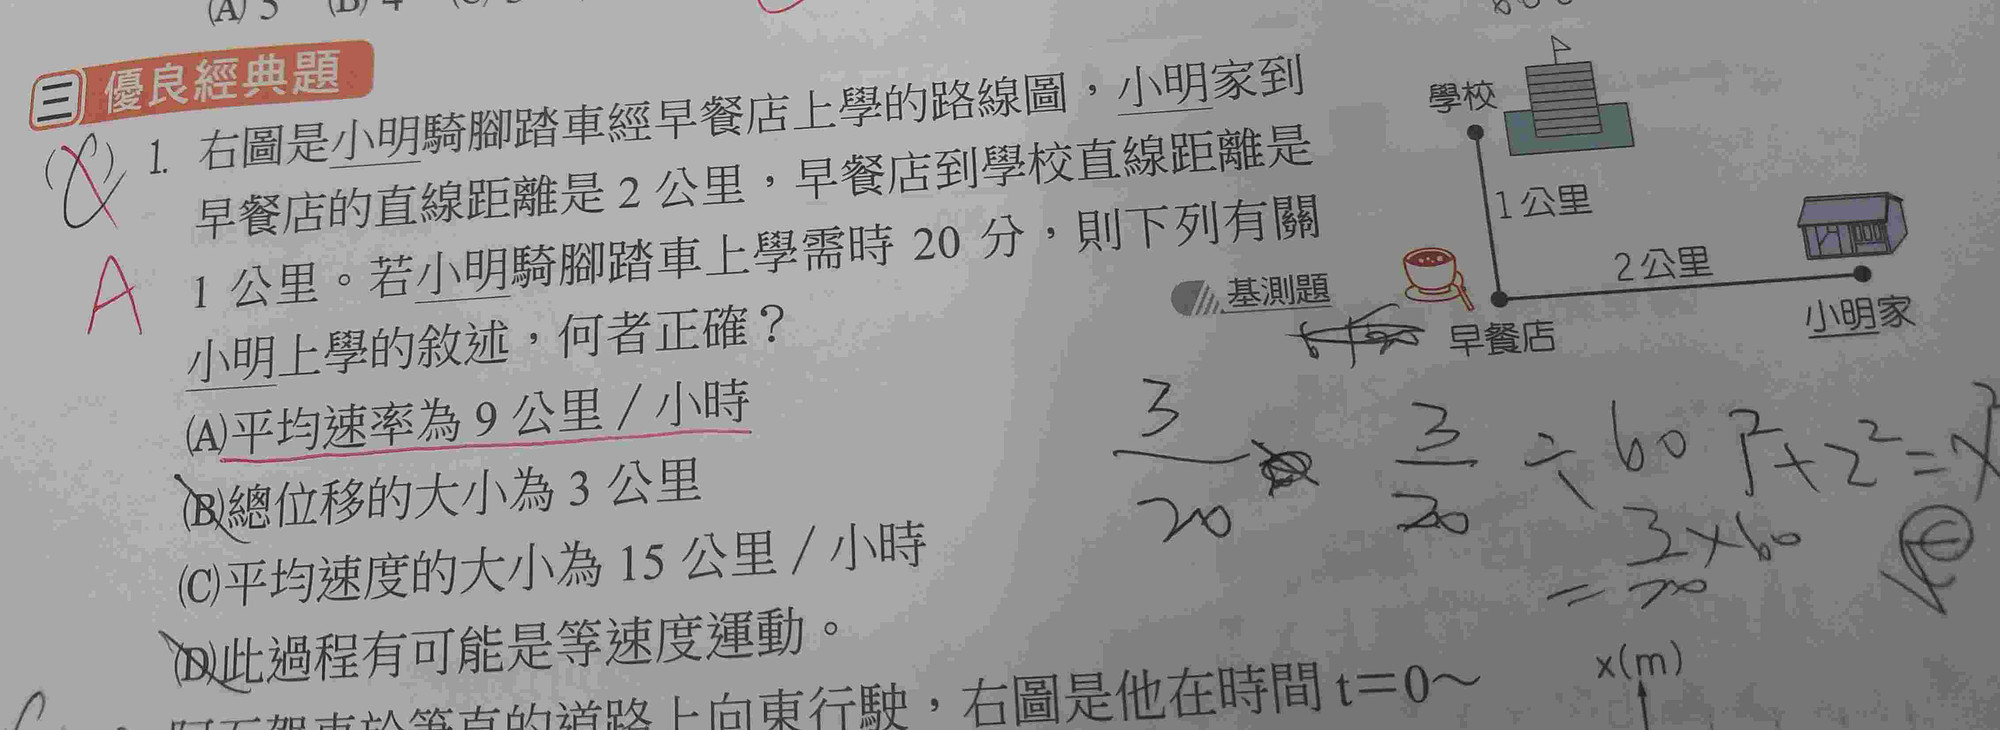 (A) 3 (B) 4
三 優良經典題
1. 右圖是小明騎腳踏車經早餐店上學的路線圖，小明家到
早餐店的直線距離是 2 公里，早餐店到學校直線距離是
1 公里。若小明騎腳踏車上學需時 20 分，則下列有關
小明上學的敘述，何者正確？
基測題
A
(A)平均速率為 9 公里／小時
(B)總位移的大小為 3 公里
(C)平均速度的大小為 15 公里／小時
(D)此過程有可能是等速度運動。
學校
1 公里
2 公里
早餐店
小明家
3/20
3/20 ÷ 60
= 3/20 × 60
1² + 2² =
車於筆直的道路上向東行駛，右圖是他在時間 t＝0～
x(m)